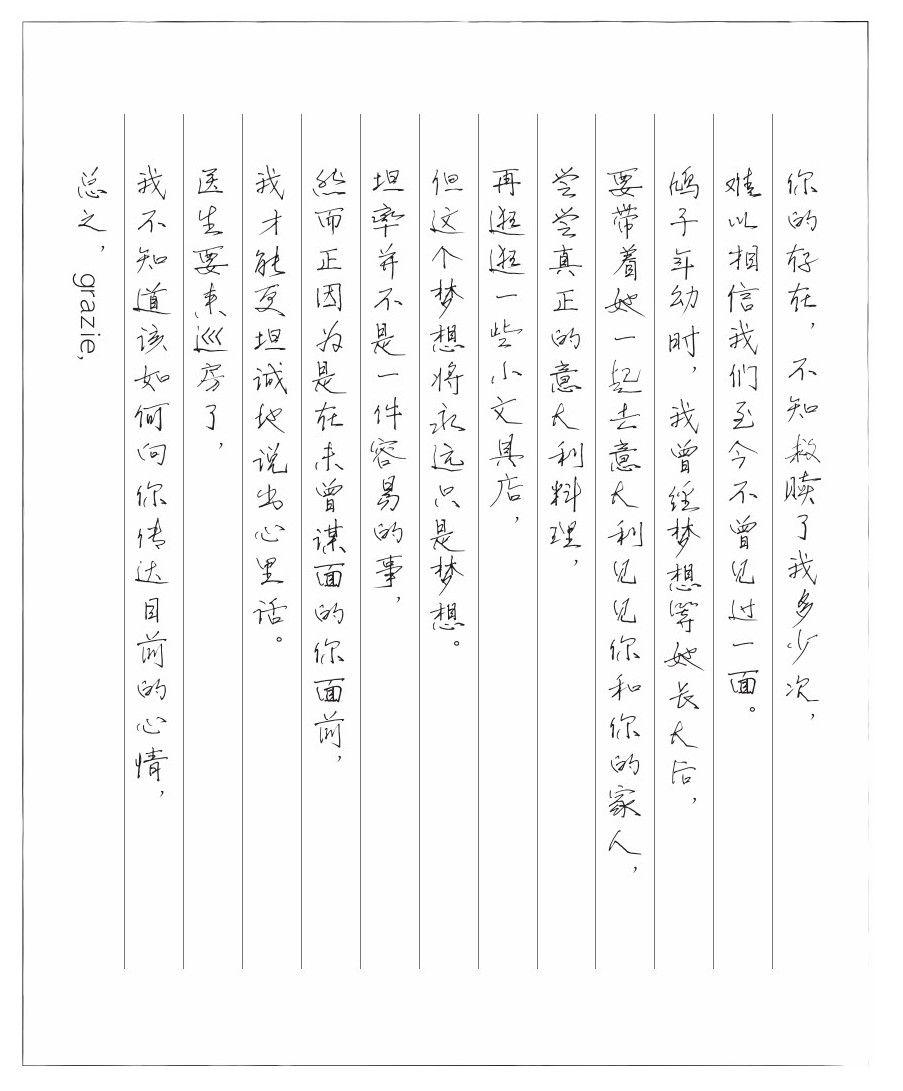 你的存在，不知救赎了我多少次，
难以相信我们至今不曾见过一面。
鸠子年幼时，我曾经梦想等她长大后，
要带着她一起去意大利见见你和你的家人，
尝尝真正的意大利料理，
再逛逛一些小文具店，
但这个梦想将永远只是梦想。
坦率并不是一件容易的事，
然而正因为是在未曾谋面的你面前，
我才能更坦诚地说出心里话。
医生要来巡房了，
我不知道该如何向你传达目前的心情，
总之，grazie,